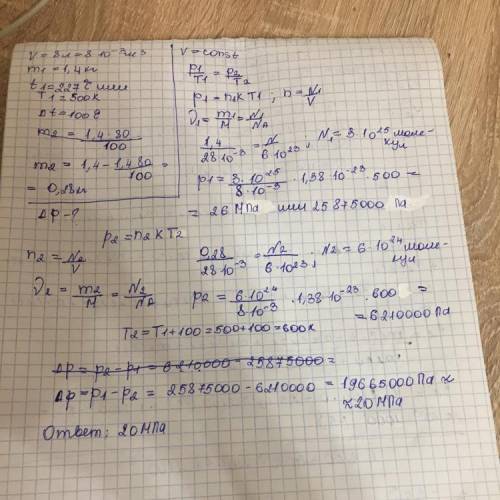 V = 8л = 8·10⁻³ м³
m1 = 1,4 кг
t1 = 227°C или
T1 = 500К
Δt = 100°C
m2 = 1,4·80 / 100
m2 = 1,4 - 1,4·80 / 100 =
= 0,28 кг
Δp - ?
V = const
p1/T1 = p2/T2
p1 = n1kT1 ; n = N1/V
ν1 = m1/M = N1/NA
1,4 / 28·10⁻³ = N / 6·10²³ ; N1 = 3·10²⁵ моле-
кул
p1 = 3·10²⁵ / 8·10⁻³ · 1,38·10⁻²³ · 500 =
= 26 МПа или 25875000 Па
p2 = n2kT2
n2 = N2/V
ν2 = m2/M = N2/NA
0,28 / 28·10⁻³ = N2 / 6·10²³ ; N2 = 6·10²⁴ моле-
кул
p2 = 6·10²⁴ / 8·10⁻³ · 1,38·10⁻²³ · 600 =
= 6210000 Па
T2 = T1+100 = 500+100 = 600К
Δp = p2 - p1 = 6210000 - 25875000 =
Δp = p1 - p2 = 25875000 - 6210000 = 19665000 Па ≈
≈ 20 МПа
Ответ: 20 МПа